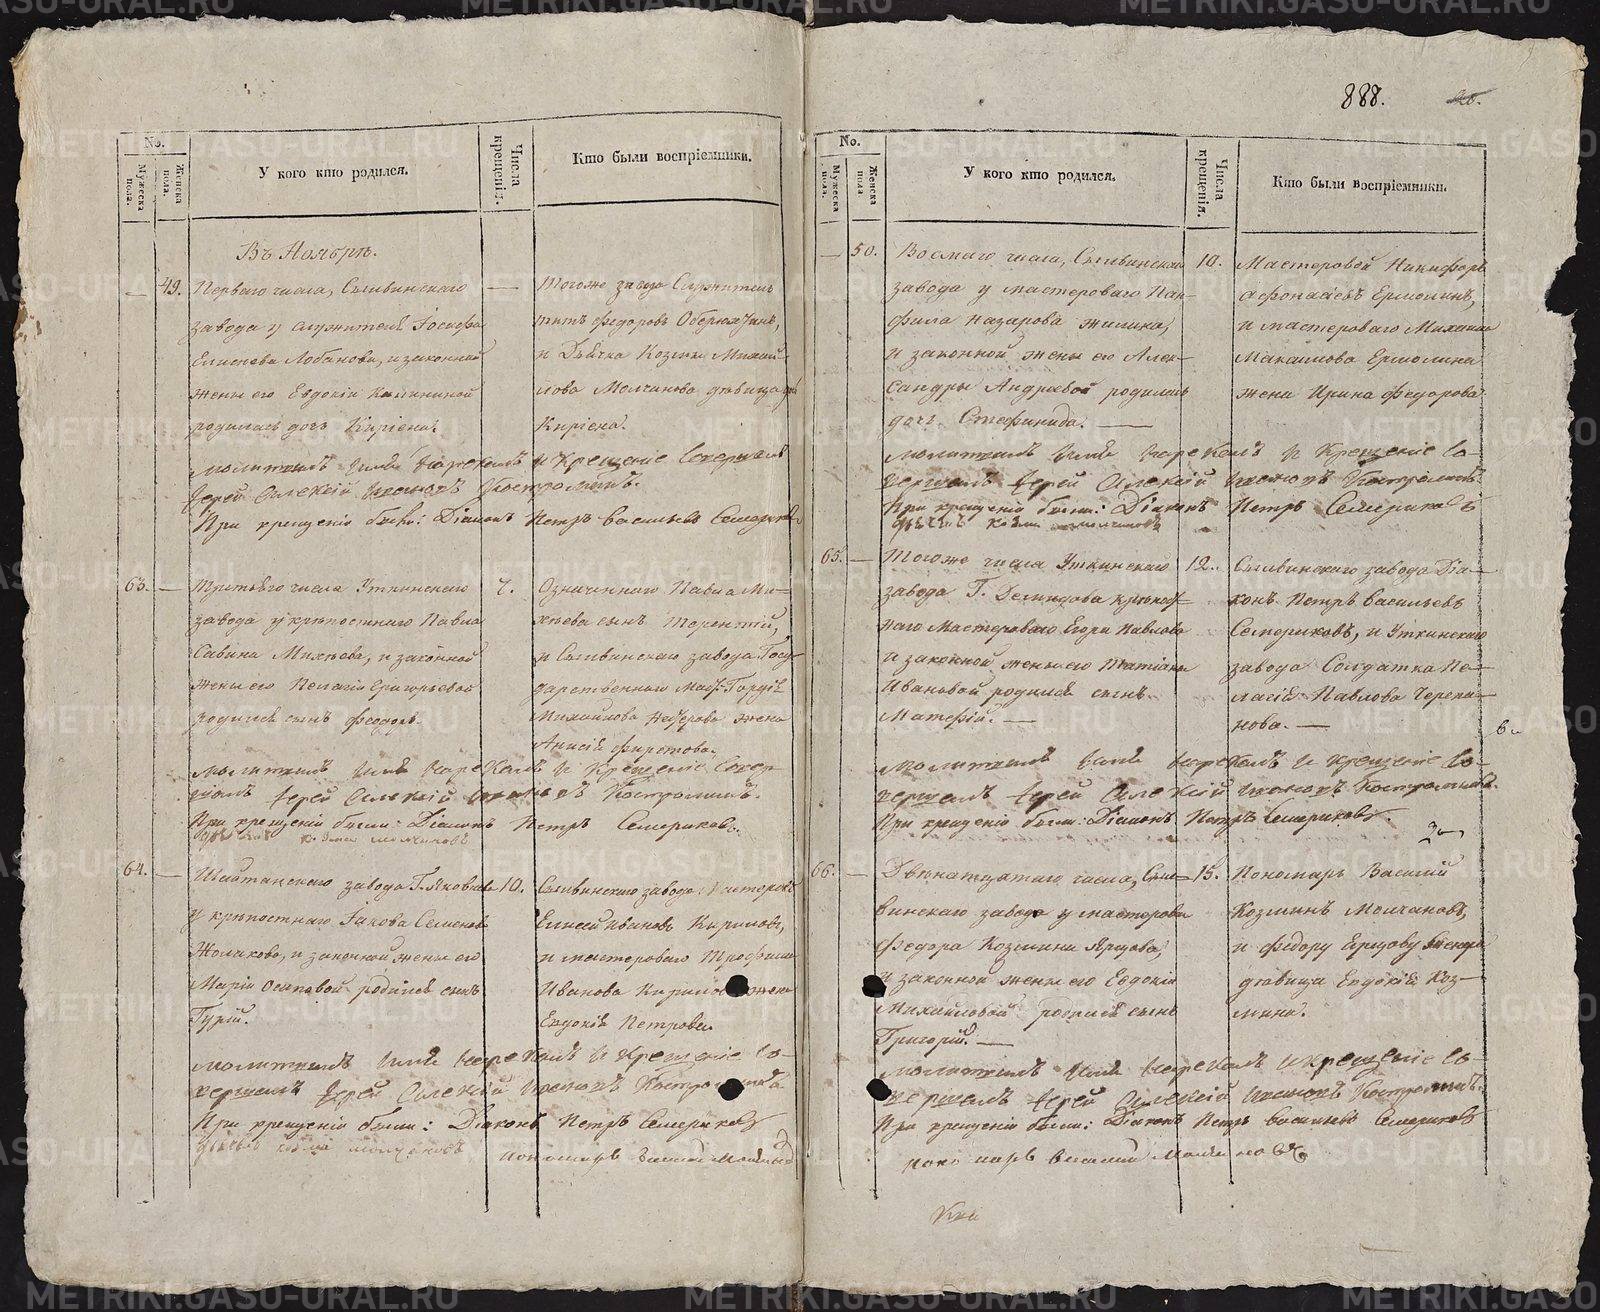 888.
No.
Мужеска пола.
Женска пола.
У кого кто родился.
Числа крещенія.
Кто были воспріемники.
Въ Ноябрѣ.
49. Перваго числа, Сылвинскаго
завода у служителя Іосифа
Лобанова, и законной
жены его Евдокіи Калининой
родилась дочь Киріена.
Тогоже завода Служитель
Титъ Федоровъ
и Дьячка Козмы Михай-
лова Молчанова дѣвица
Киріена.
молитвилъ имя нарекалъ и крещеніе совершалъ
Іерей Алексій Костроминъ.
При крещеніи были: Діаконъ Петръ Васильевъ Семериковъ
63. Третьяго числа Уткинскаго
завода у крѣпостнаго Павла
Савина Михѣева, и законной
жены его Пелагіи Григорьевой
родился сынъ Феодоръ.
7.
Означеннаго Павла Ми-
хѣева сынъ Терентій,
и Сылвинскаго завода Госу-
дарственнаго Маст. Гордѣя
Михайлова жена
Анисія Фирстова.
молитвилъ имя нарекалъ и крещеніе совер-
шалъ Іерей Алексій Костроминъ.
При крещеніи были: Діаконъ Петръ Семериковъ.
дьячекъ Козма Молчановъ
64. Шайтанскаго завода Г. Яковлева
у крѣпостнаго Іакова Семенова
и законной жены его
Маріи Осиповой родился сынъ
Гурій.
10.
Сылвинскаго завода Мастеровой
Елисей Ивановъ Кириловъ,
и мастероваго Трофима
Иванова Кирилова жена
Евдокія Петрова.
молитвилъ имя нарекалъ и крещеніе со-
вершалъ Іерей Алексій Костроминъ
При крещеніи были: Діаконъ Петръ Семериковъ
дьячекъ Козма Молчановъ пономарь Василій Молчановъ
No.
Мужеска пола.
Женска пола.
У кого кто родился.
Числа крещенія.
Кто были воспріемники.
50. Восмаго числа, Сылвинскаго
завода у мастероваго Пан-
фила Назарова Жилина,
и законной жены его Алек-
сандры Андреевой родилась
дочь Стефанида.
10.
Мастеровой Никифоръ
Афонасьевъ Ермолинъ,
и мастероваго Михаила
Максимова Ермолина
жена Ирина Федорова
молитвилъ имя нарекалъ и крещеніе со-
вершалъ Іерей Алексій Костроминъ.
При крещеніи были: Діаконъ Петръ Семериковъ
дьячекъ Козма Молчановъ
65. Тогоже числа Уткинскаго
завода Г. Демидова крѣпост-
наго Мастероваго Егора Павлова
и законной жены его Татіаны
Ивановой родился сынъ
Матфій.
12.
Сылвинскаго завода Діа-
конъ Петръ Васильевъ
Семериковъ, и Уткинскаго
завода Солдатка Пе-
лагія Павлова Черепа-
нова.
молитвилъ имя нарекалъ и крещеніе со-
вершалъ Іерей Алексій Костроминъ.
При крещеніи были: Діаконъ Петръ Семериковъ.
66. Двенатцатаго числа, Сыл-
винскаго завода у мастероваго
Федора Козмина Ярцова,
и законной жены его Евдокіи
Михайловой родился сынъ
Григорій.
15.
Пономарь Василій
Козминъ Молчановъ,
и Федору Ярцову
дѣвица Евдокія Коз-
мина.
молитвилъ имя нарекалъ и крещеніе со-
вершалъ Іерей Алексій Костроминъ.
При крещеніи были: Діаконъ Петръ Васильевъ Семериковъ
пономарь Василій Молчановъ
METRIKI.GASO-URAL.RU